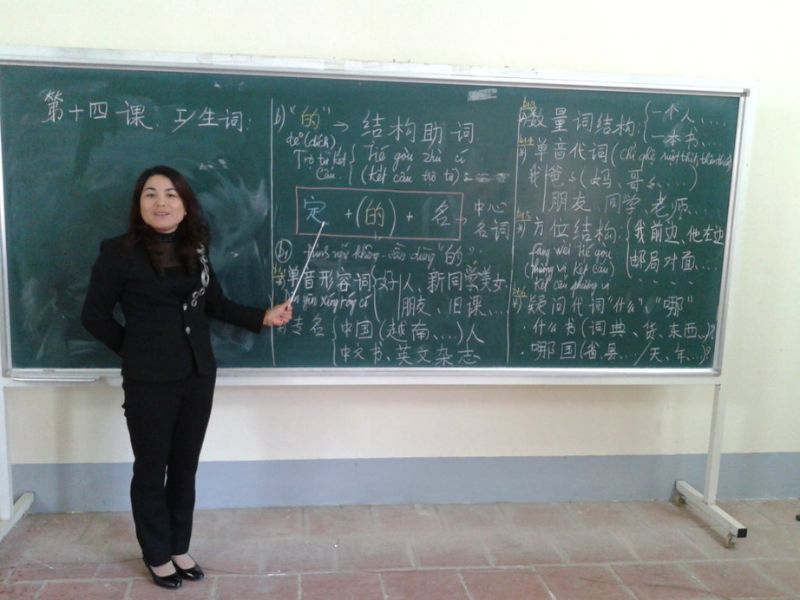 第十四课: I/生词:
b) "的" → 结构助词
de° (đích)
Trợ từ kết cấu.
jié gòu zhù cí
(kết cấu trợ từ)
定 + (的) + 名 → 中心名词
không cần dùng "的".
单音形容词 好人、新同学、美女
朋友、旧课…
专名 中国 (越南、…) 人
中文书、英文杂志
数量词结构: 一个人、…
一本书…
单音代词 (chỉ
我 爸爸 (妈、哥、…)
朋友 同学 老师、…
方位结构: 我前边、他左边
fang wei jié gòu
邮局对面、…
(phương vị kết cấu)
kết cấu phương vị
疑问代词 "什么"、"哪"
· 什么书 (词典、货、东西、…)?
· 哪国 (省、县、…/天、年、…)?